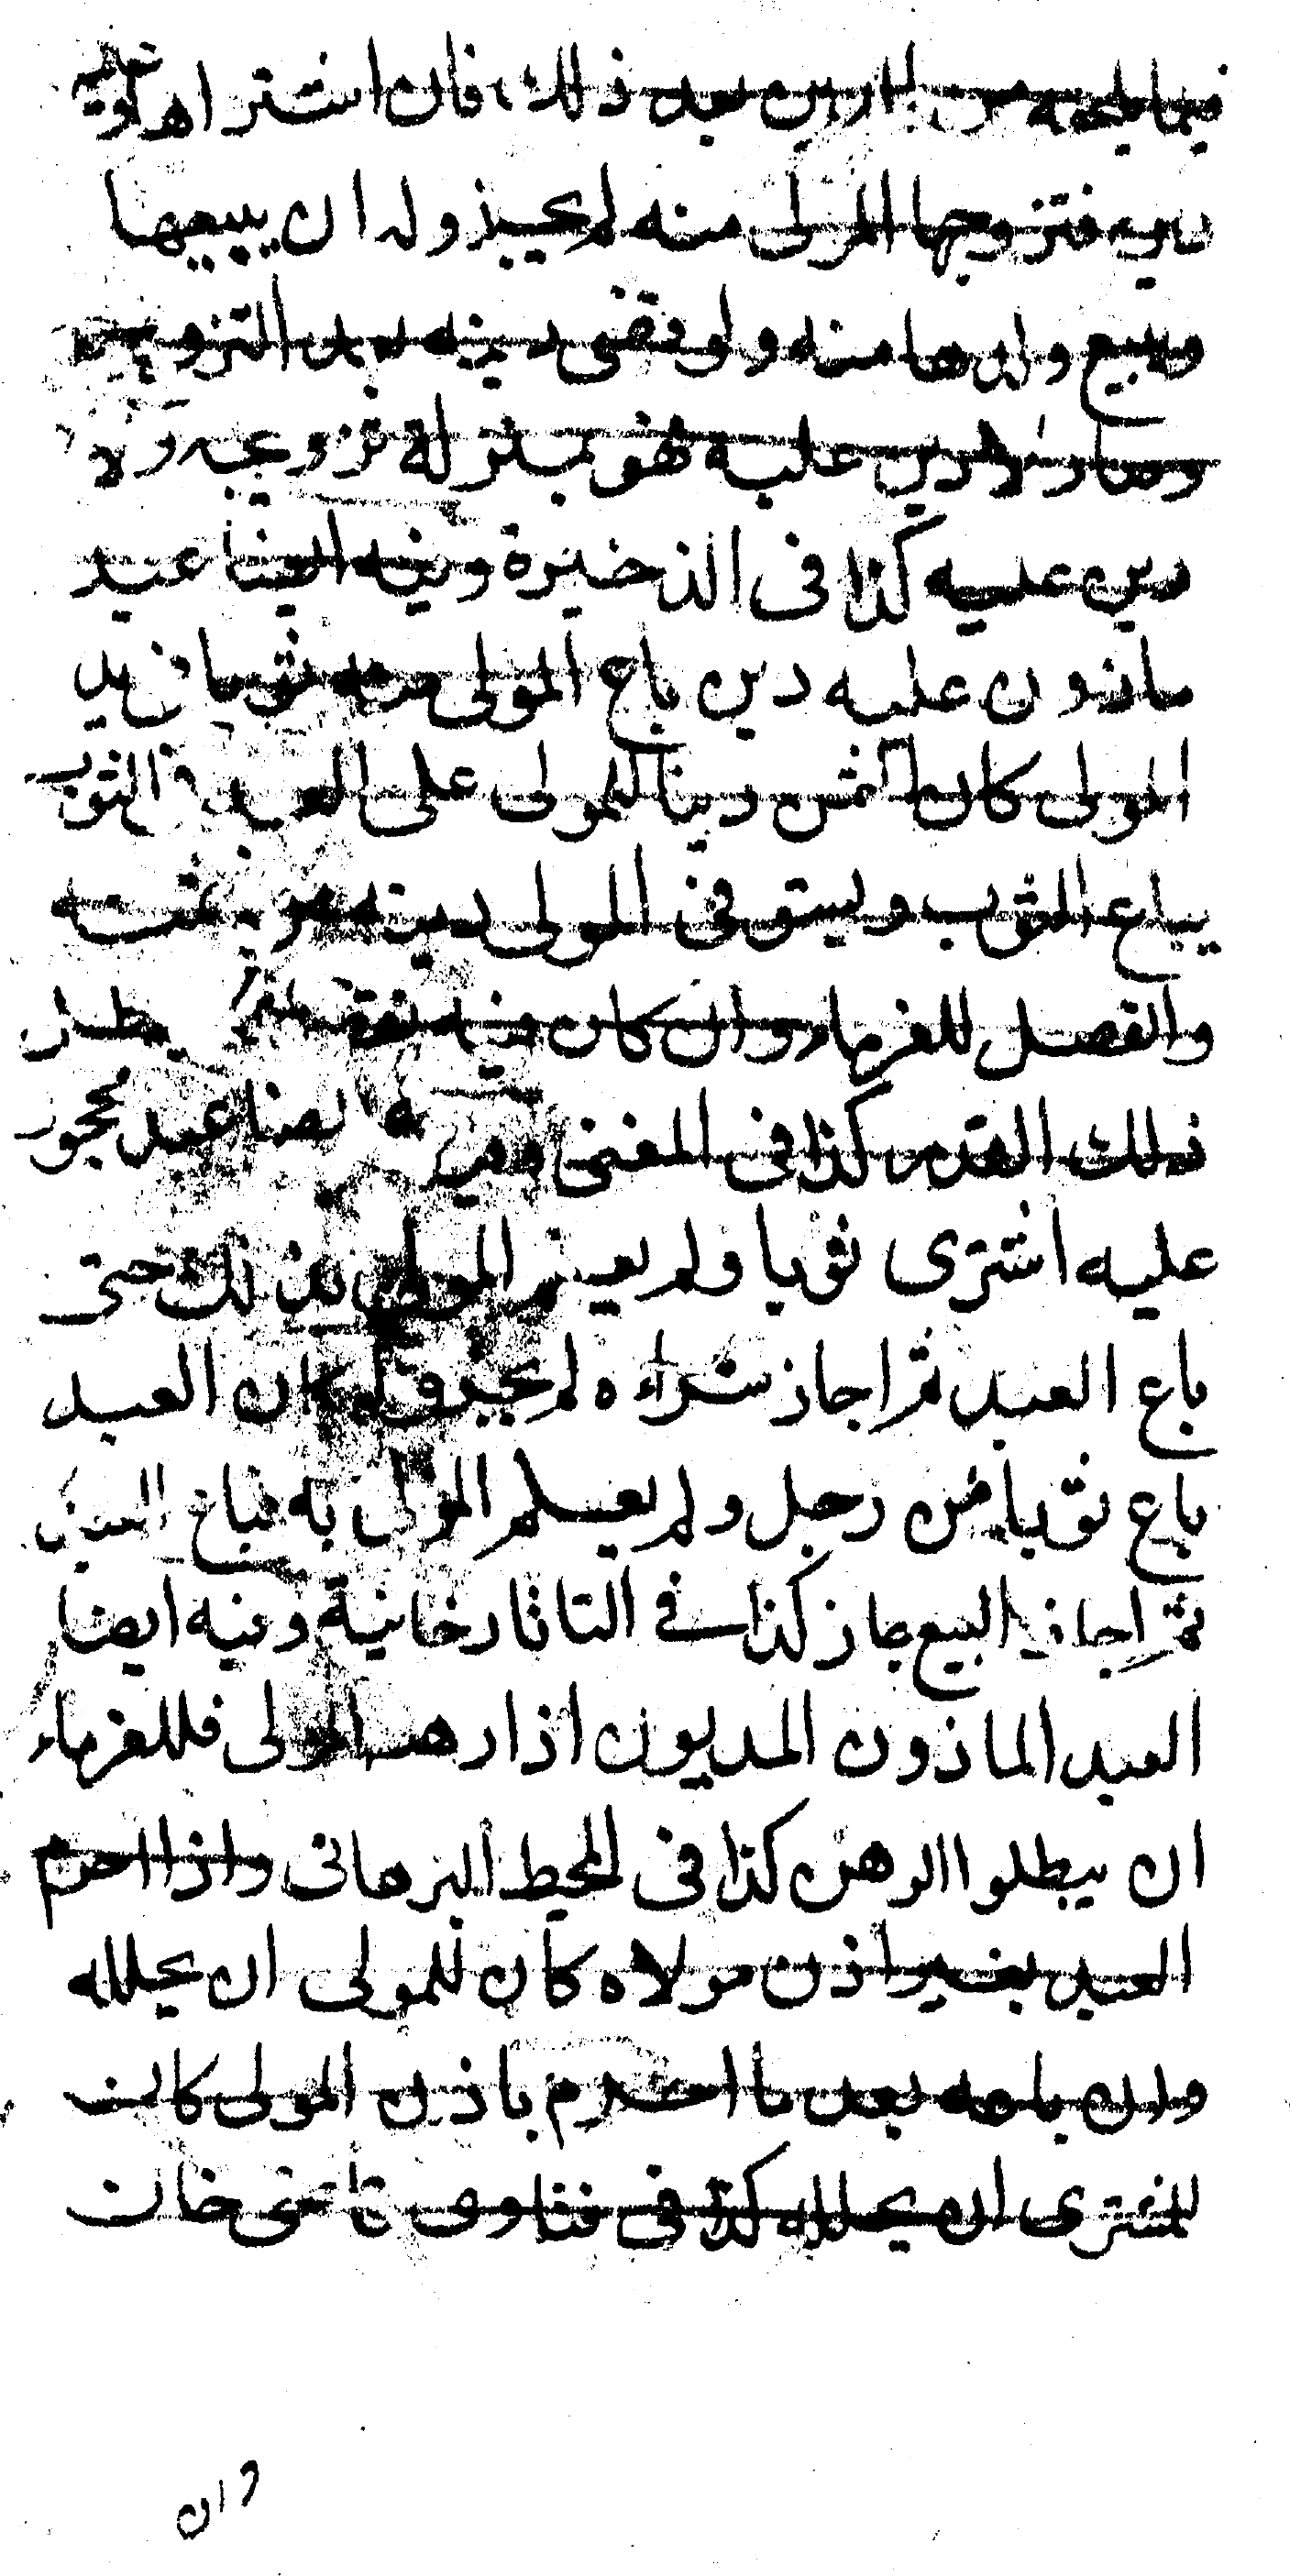 فيما يلحقه من الدين بعد ذلك فان اشتراها وعليه
دين فتزوجها المولى منه لم يجز وله ان يبيعها
ويبيع ولدها منه ولو قضى دينه بعد التزويج
وصار لا دين عليه فهو بمنزلة تزويجه ولا
دين عليه كذا فى الذخيرة وفيه ايضا عبد
ماذون عليه دين باع المولى منه ثوبا فى يد
المولى كان الثمن دينا للمولى على العبد فى الثوب
يباع الثوب ويستوفى المولى دينه من ثمنه
والفضل للغرماء وان كان فيه نقصان بطل
ذلك القدر كذا فى المغنى وفيه ايضا عبد محجور
عليه اشترى ثوبا ولم يعلم المولى بذلك حتى
باع العبد ثم اجاز شراءه لم يجز ولو كان العبد
باع ثوبا من رجل ولم يعلم المولى به فباع العبد
ثم اجاز البيع جاز كذا في التاتارخانية وفيه ايضا
العبد الماذون المديون اذا رهنه المولى فللغرماء
ان يبطلوا الرهن كذا فى المحيط البرهانى واذا احرم
العبد بغير اذن مولاه كان للمولى ان يحلله
وان باعه بعد ما احرم باذن المولى كان
للمشترى ان يحلله كذا فى فتاوى قاضى خان
وان